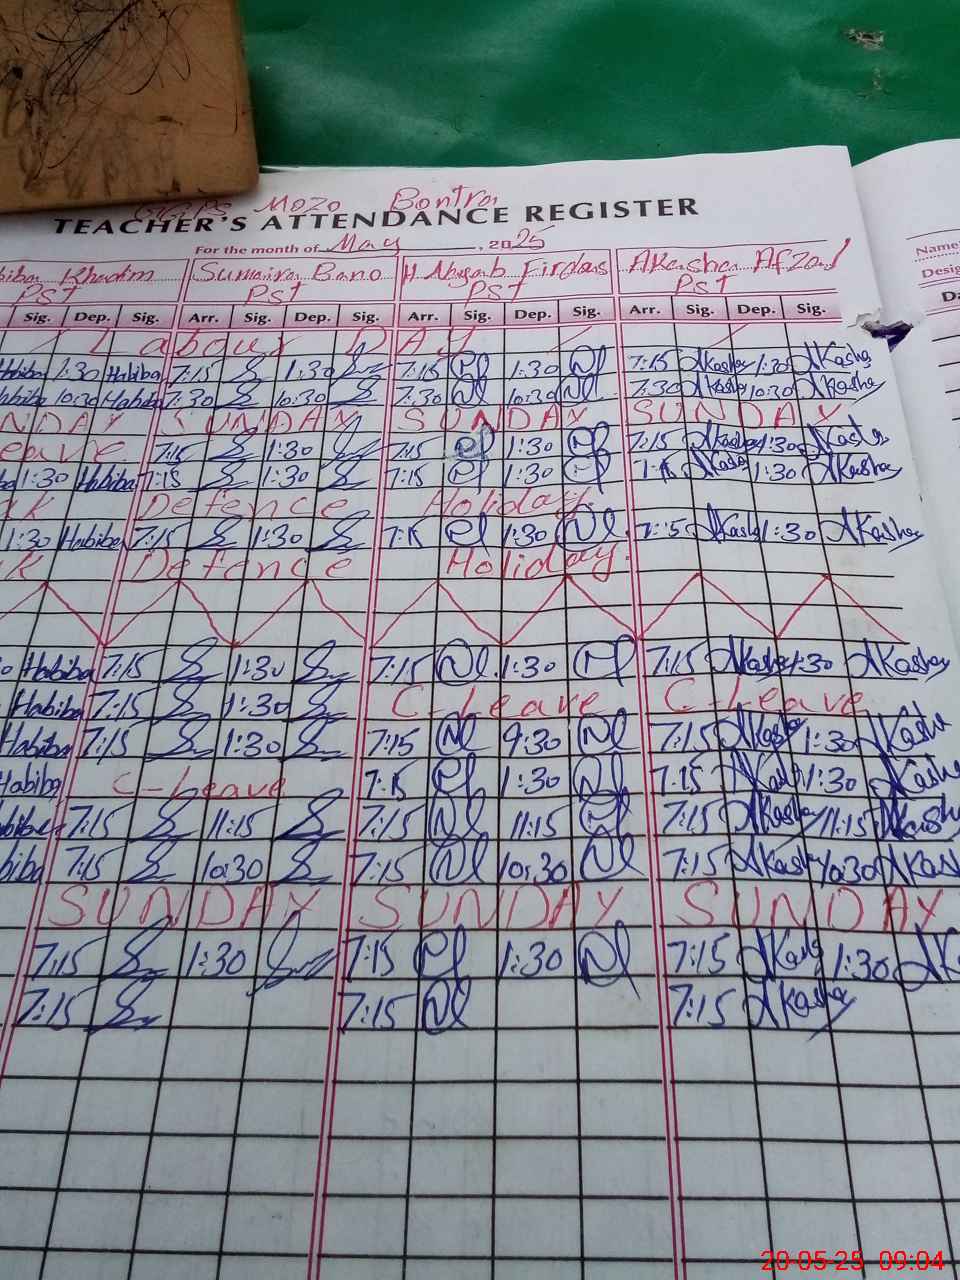 GGPS Mozo Bontra
TEACHER'S ATTENDANCE REGISTER
For the month of May, 2025
Name
Habiba Khadim Sumaira Bano H Nayab Firdous Akasha Afzaal
Desig
PST PST PST PST
Sig. Dep. Sig. Arr. Sig. Dep. Sig. Arr. Sig. Dep. Sig. Arr. Sig. Dep. Sig.
Labour DAY
Habiba 1:30 Habiba 7:15 1:30 7:15 1:30 7:15 AKasha 1:30 AKasha
Habiba 10:30 Habiba 7:30 10:30 7:30 10:30 7:30 AKasha 10:30 AKasha
NDAY SUNDAY SUNDAY SUNDAY
eave 7:15 1:30 7:15 1:30 7:15 AKasha 1:30 AKasha
1:30 Habiba 7:15 1:30 7:15 1:30 7:15 AKasha 1:30 AKasha
Defence Holiday
1:30 Habiba 7:15 1:30 7:15 1:30 7:15 AKasha 1:30 AKasha
Defence Holiday
Habiba 7:15 1:30 7:15 1:30 7:15 AKasha 1:30 AKasha
Habiba 7:15 1:30 C-Leave C-Leave
Habiba 7:15 1:30 7:15 9:30 7:15 AKasha 1:30 AKasha
Habiba C-Leave 7:15 1:30 7:15 AKasha 1:30 AKasha
7:15 11:15 7:15 11:15 7:15 AKasha 11:15 AKasha
biba 7:15 10:30 7:15 10:30 7:15 AKasha 10:30 AKash
SUNDAY SUNDAY SUNDAY
7:15 1:30 7:15 1:30 7:15 AKasha 1:30 AK
7:15 7:15 7:15 AKasha
20-05-25 09:04